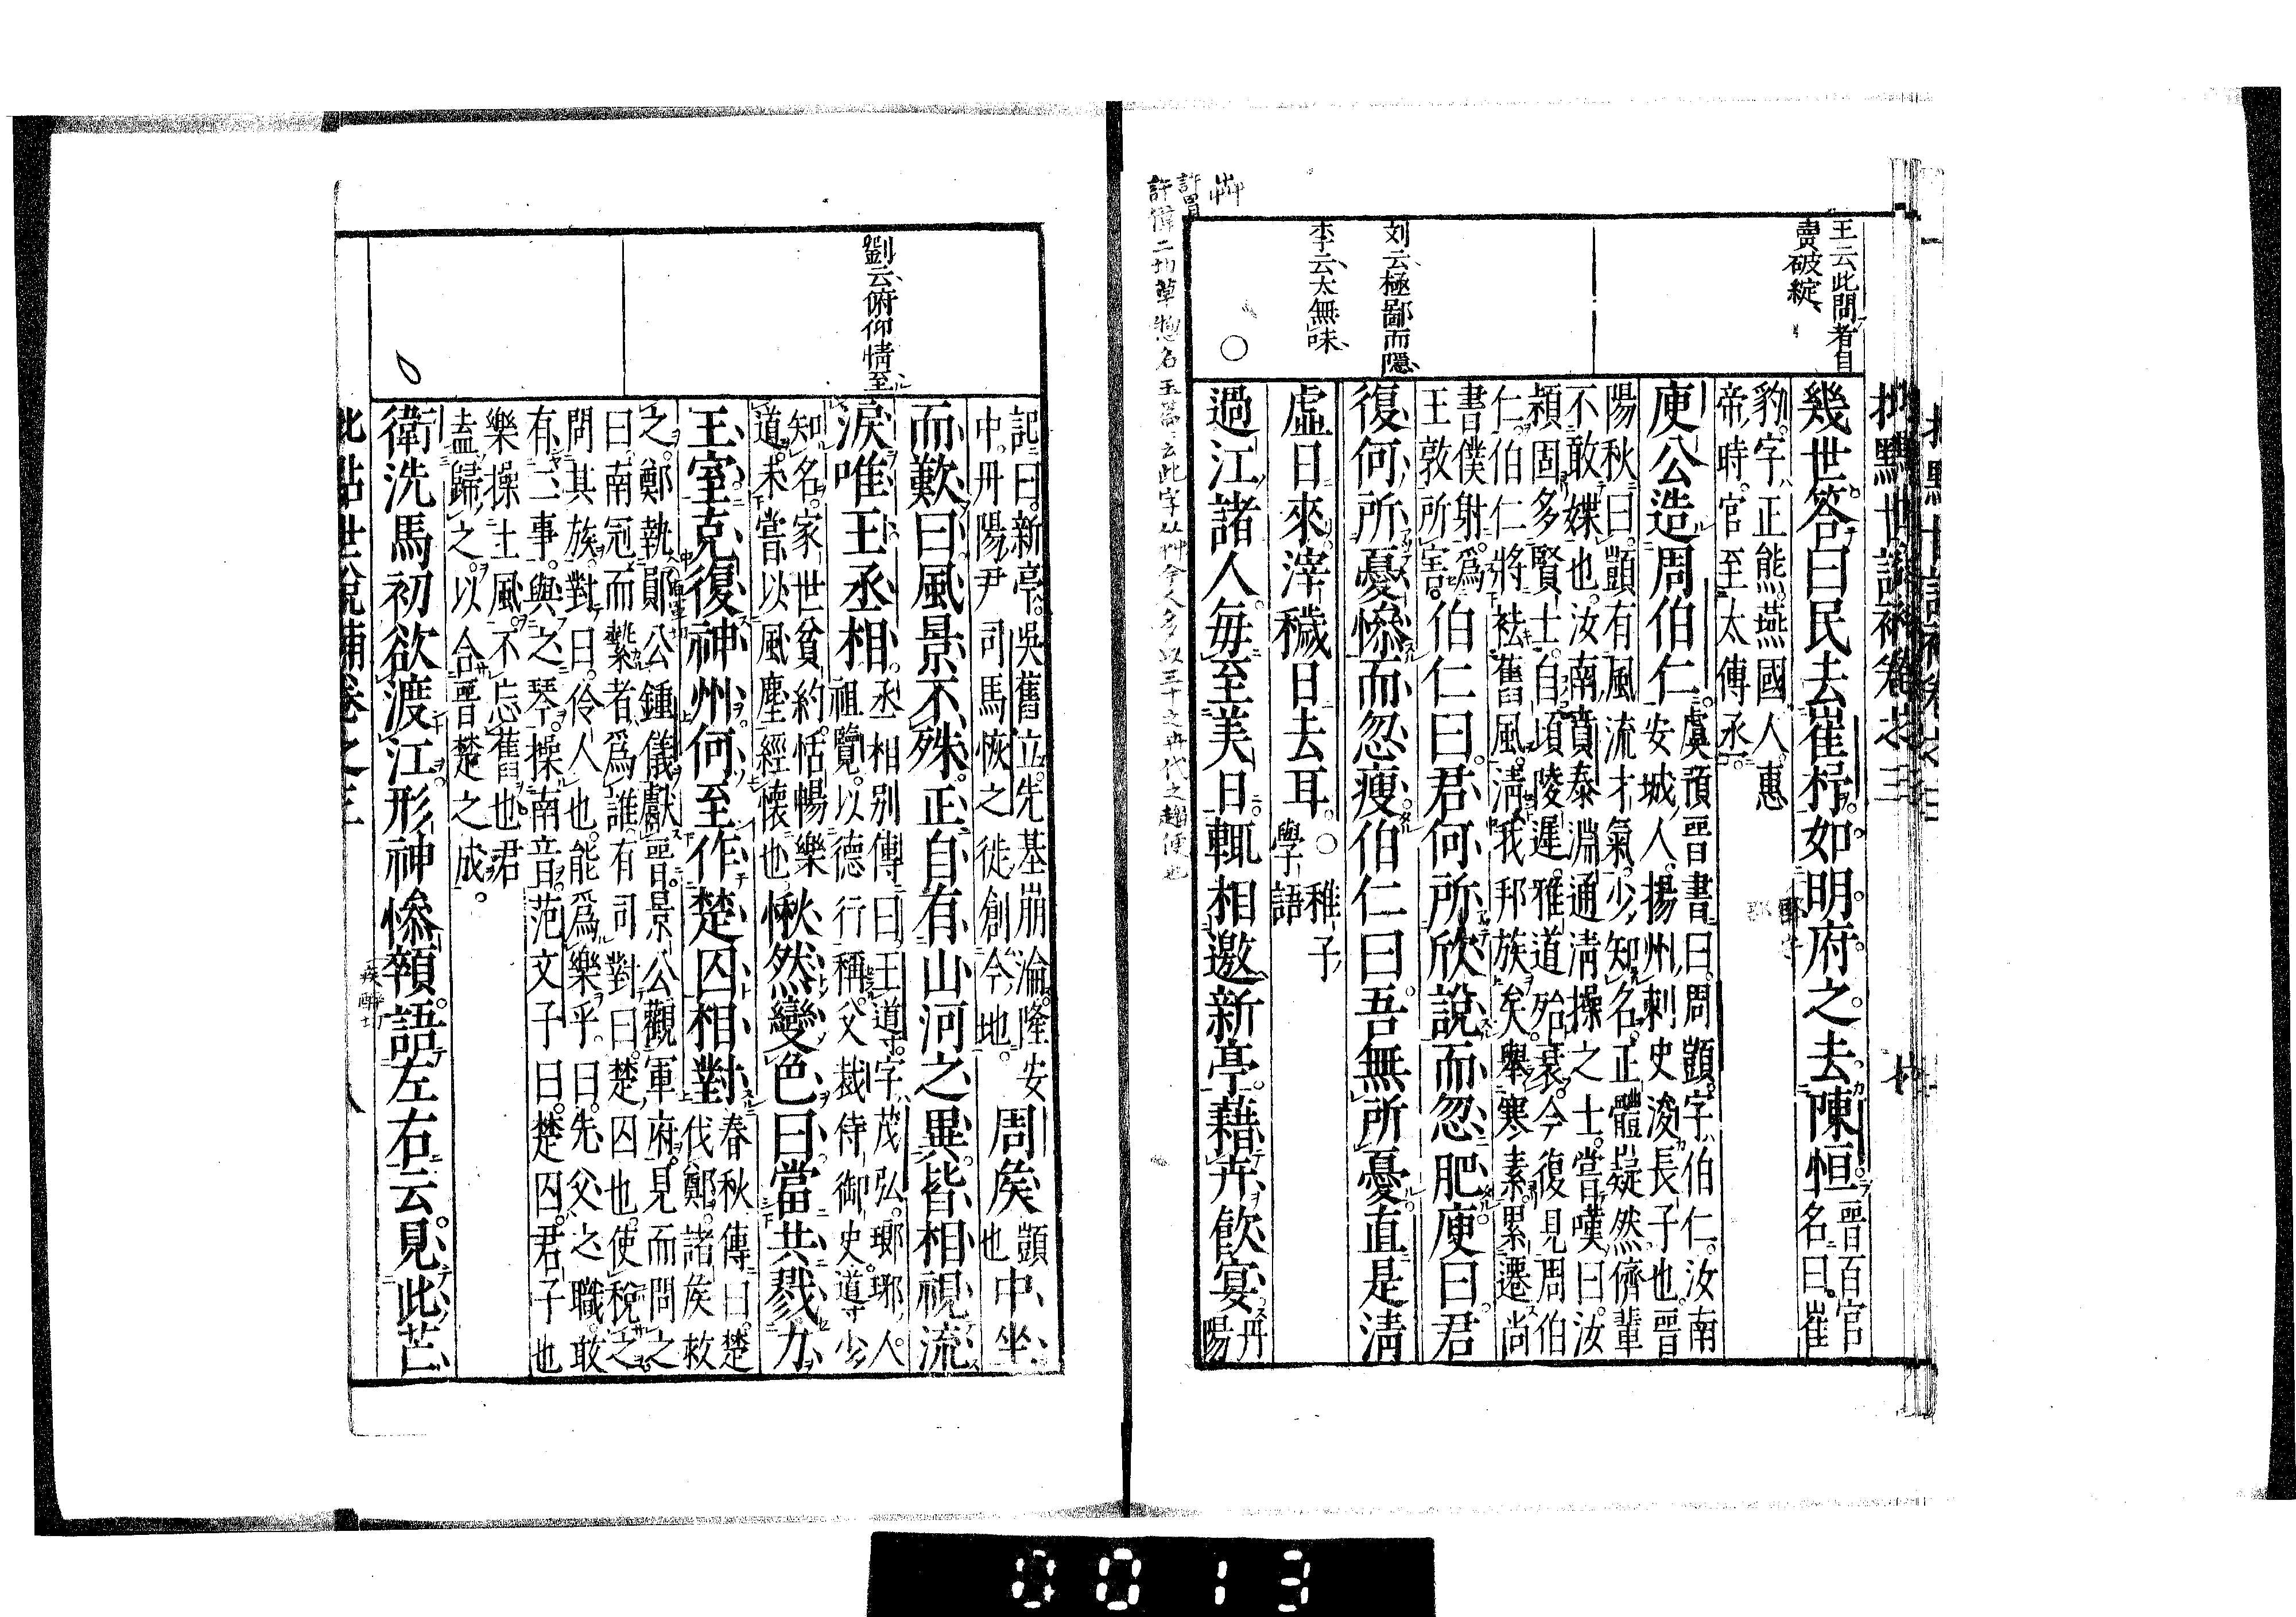 王云此問者自
賣破綻
刘云極鄙而隱
李云太無味
幾世答曰民去崔杼如明府之去陳恒晉百官名曰崔
豹字正熊燕國人惠
帝時官至太傅丞
庾公造周伯仁虞預晉書曰周顗字伯仁汝南
安城人揚州刺史浚長子也晉
陽秋曰顗有風流才氣少知名正體嶷然儕輩
不敢媟也汝南賁泰淵通淸操之士嘗嘆曰汝
潁固多賢士自頃陵遲雅道殆衰今復見周伯
仁伯仁將袪舊風淸我邦族矣舉寒素累遷尚
書僕射爲
王敦所害
伯仁曰君何所欣說而忽肥庾曰君
復何所憂慘而忽瘦伯仁曰吾無所憂直是淸
虛日來滓穢日去耳○稚子
學語
過江諸人每至美日輒相邀新亭藉卉飮宴丹
陽
記曰新亭吳舊立先基崩淪隆安
中丹陽尹司馬恢之徙創今地
周矦顗
也
中坐
而歎曰風景不殊正自有山河之異皆相視流
淚唯王丞相丞相別傳曰王道字茂弘瑯琊人
祖覽以德行稱父裁侍御史導少
知名家世貧約恬暢樂
道未嘗以風塵經懷也
愀然變色曰當共戮力
王室克復神州何至作楚囚相對春秋傳曰楚
伐鄭諸矦救
之鄭執鄖公鍾儀獻晉景公觀軍府見而問之
曰南冠而縶者爲誰有司對曰楚囚也使稅之
問其族對曰伶人也能爲樂乎曰先父之職敢
有二事與之琴操南音范文子曰楚囚君子也
樂操土風不忘舊也君
盍歸之以合晉楚之成
衛洗馬初欲渡江形神慘顇語左右云見此芒
劉云俯仰情至
批點世說補卷之三
八
0013